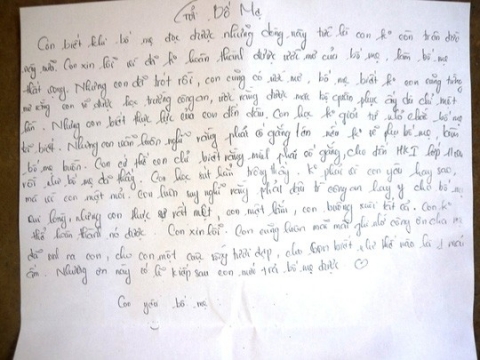 Gửi Bố Mẹ
Con biết khi bố mẹ đọc được những dòng này tức là con ko còn trên đời
này nữa. Con xin lỗi vì đã ko hoàn thành được ước mơ của bố mẹ, làm bố mẹ
thất vọng. Nhưng con đã trót rồi, con cũng có ước mơ, bố mẹ biết ko con cũng từng
mơ rằng con sẽ được học trường công an, ước rằng được mặc bộ quân phục ấy dù chỉ một
lần. Nhưng con biết thực lực của con đến đâu. Con học ko giỏi từ nhỏ chắc bố mẹ
biết. Nhưng con luôn nghĩ rằng phải cố gắng lên nếu ko sẽ phụ bố mẹ, làm
bố mẹ buồn. Con cứ thế con chỉ biết rằng mình phải cố gắng cho đến HKI lớp
rồi như bố mẹ đã thấy. Con học sút hẳn trông thấy. ko phải vì con yêu hay sao,
mà vì con mệt mỏi. Con luôn suy nghĩ rằng phải đạt công an hay y cho bố mẹ
vui lòng, nhưng con thực sự rất mệt, con mệt lắm, con buông xuôi tất cả. Con ko
thể hoàn thành nó được. Con xin lỗi. Con cũng luôn mãi mãi ghi nhớ công ơn cha mẹ
đã sinh ra con, cho con một cuộc sống tươi đẹp, cho con biết như thế nào là 1 mái
ấm. Nhưng ơn này có lẽ kiếp sau con mới trả bố mẹ được ♡
Con yêu bố mẹ